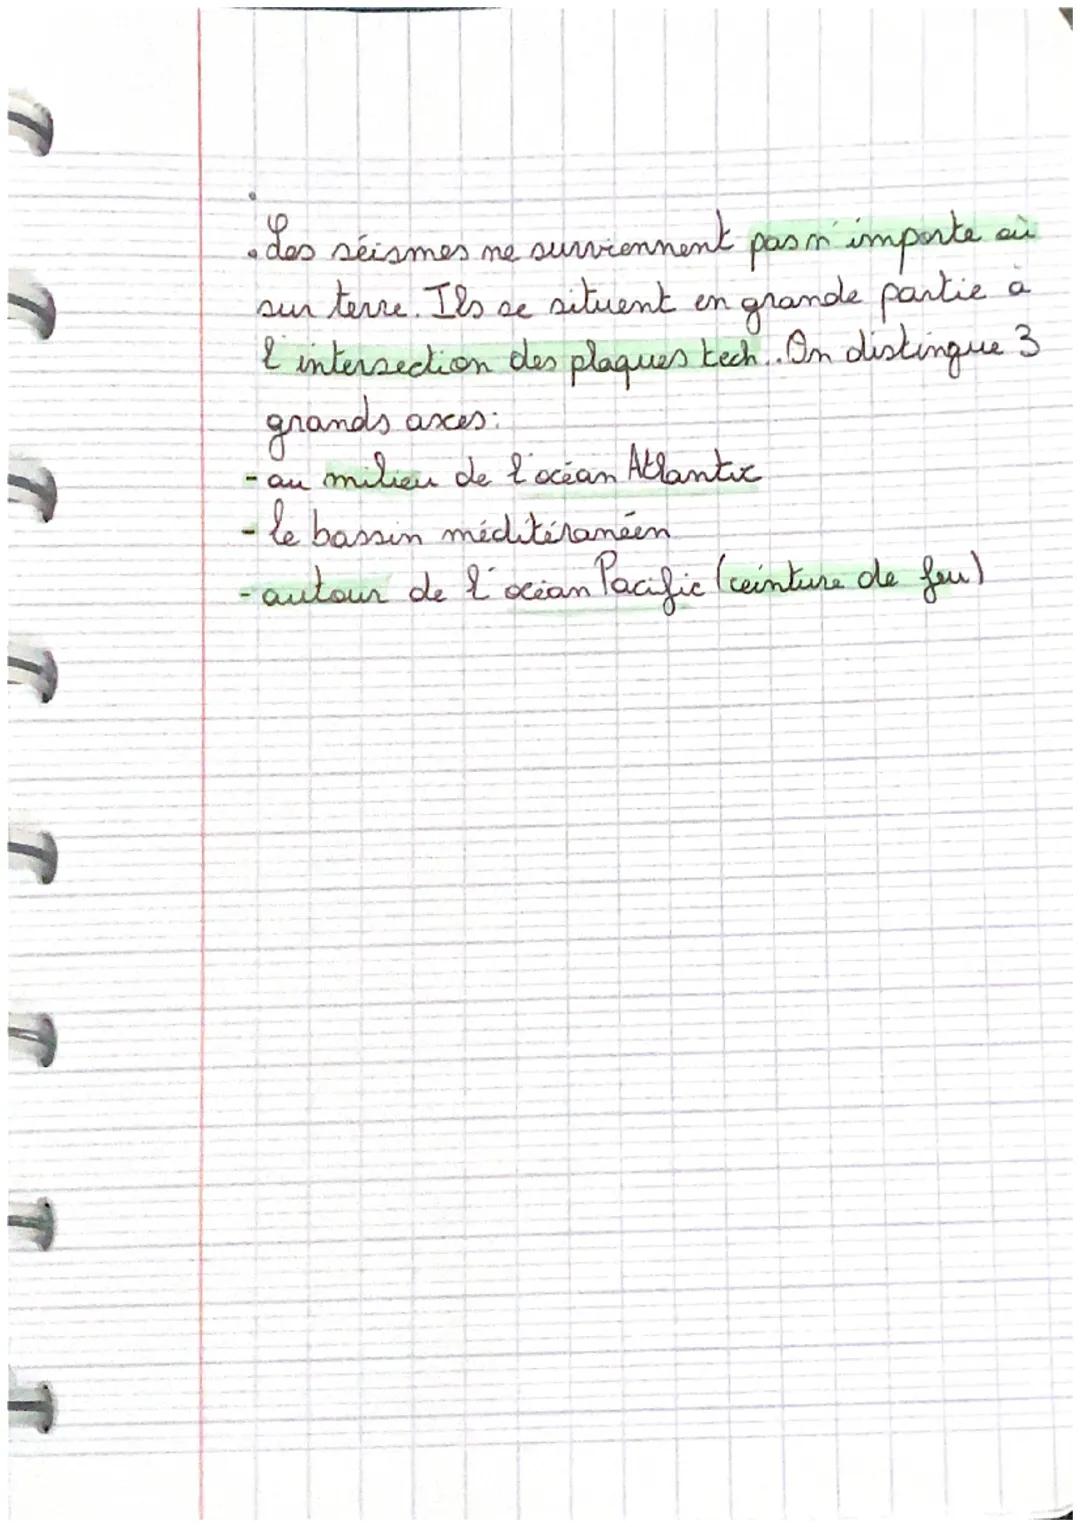 . Les séismes ne surviennent pas n'importe où
sur terre. Ils se situent en grande partie à
l'intersection des plaques tech.. On distingue 3
grands axes:
- au milieu de l'océan Atlantic
- le bassin méditéranéen
- autour de l'océan Pacific (ceinture de feu)